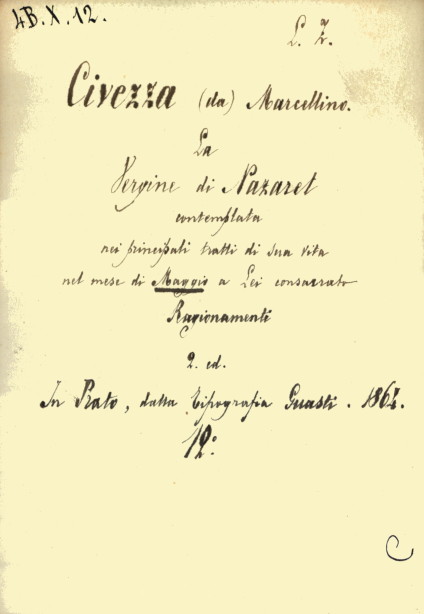 4B.X.12.
L. 2.
Civezza (da) Marcellino.
La
Vergine di Nazaret
contemplata
nei principali tratti di sua vita
nel mese di Maggio a Lei consacrato
Ragionamenti
2. ed.
In Prato, dalla Tipografia Guasti. 1864.
12.°
C